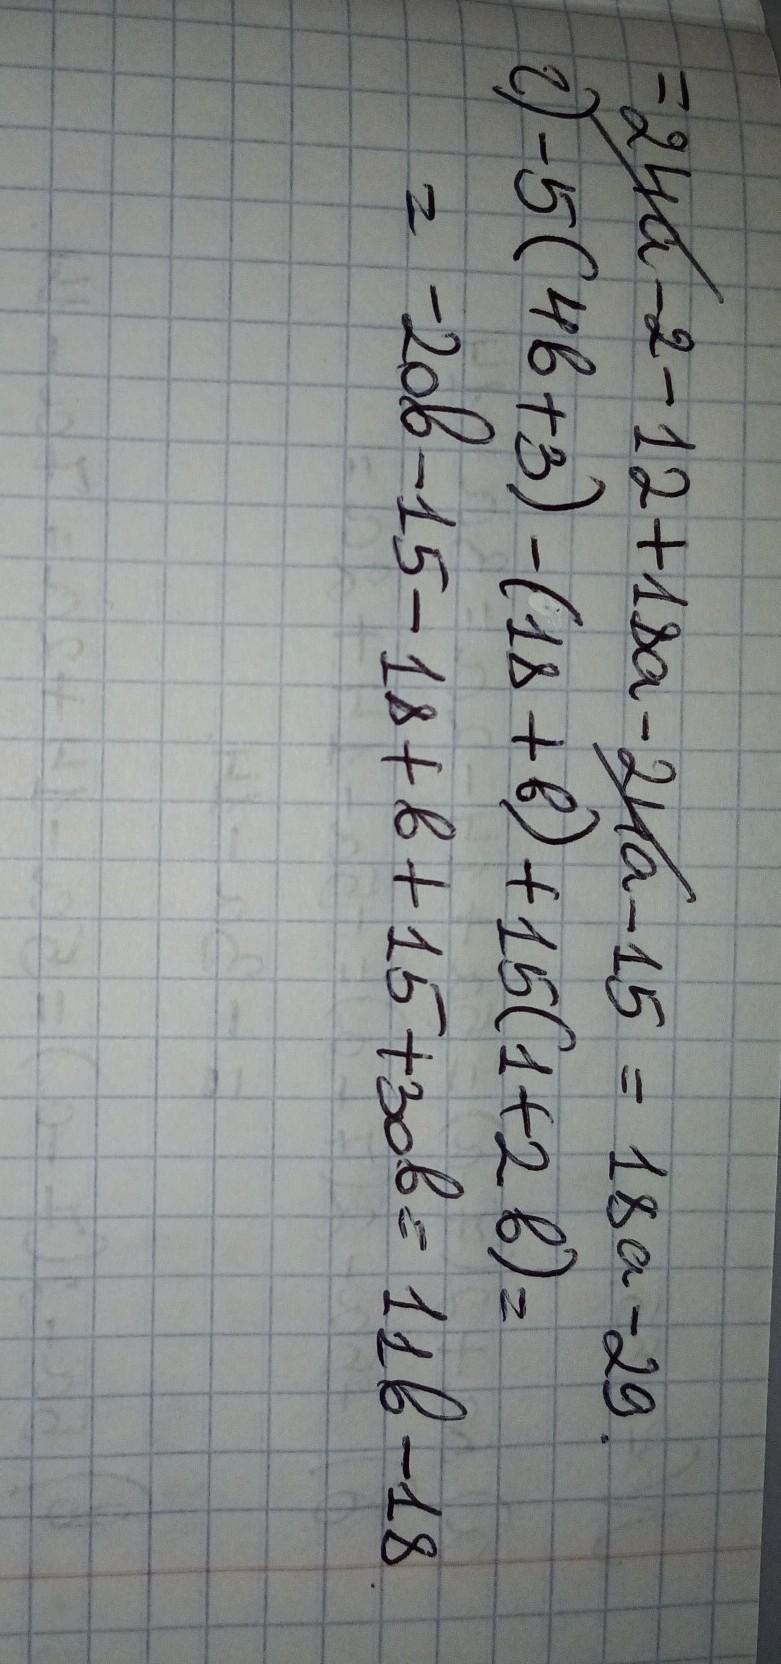 =24a-2-12+18a-24a-15=18a-29.
г)-5(4b+3)-(18+b)+15(1+2b)=
= -20b-15-18+b+15+30b=11b-18